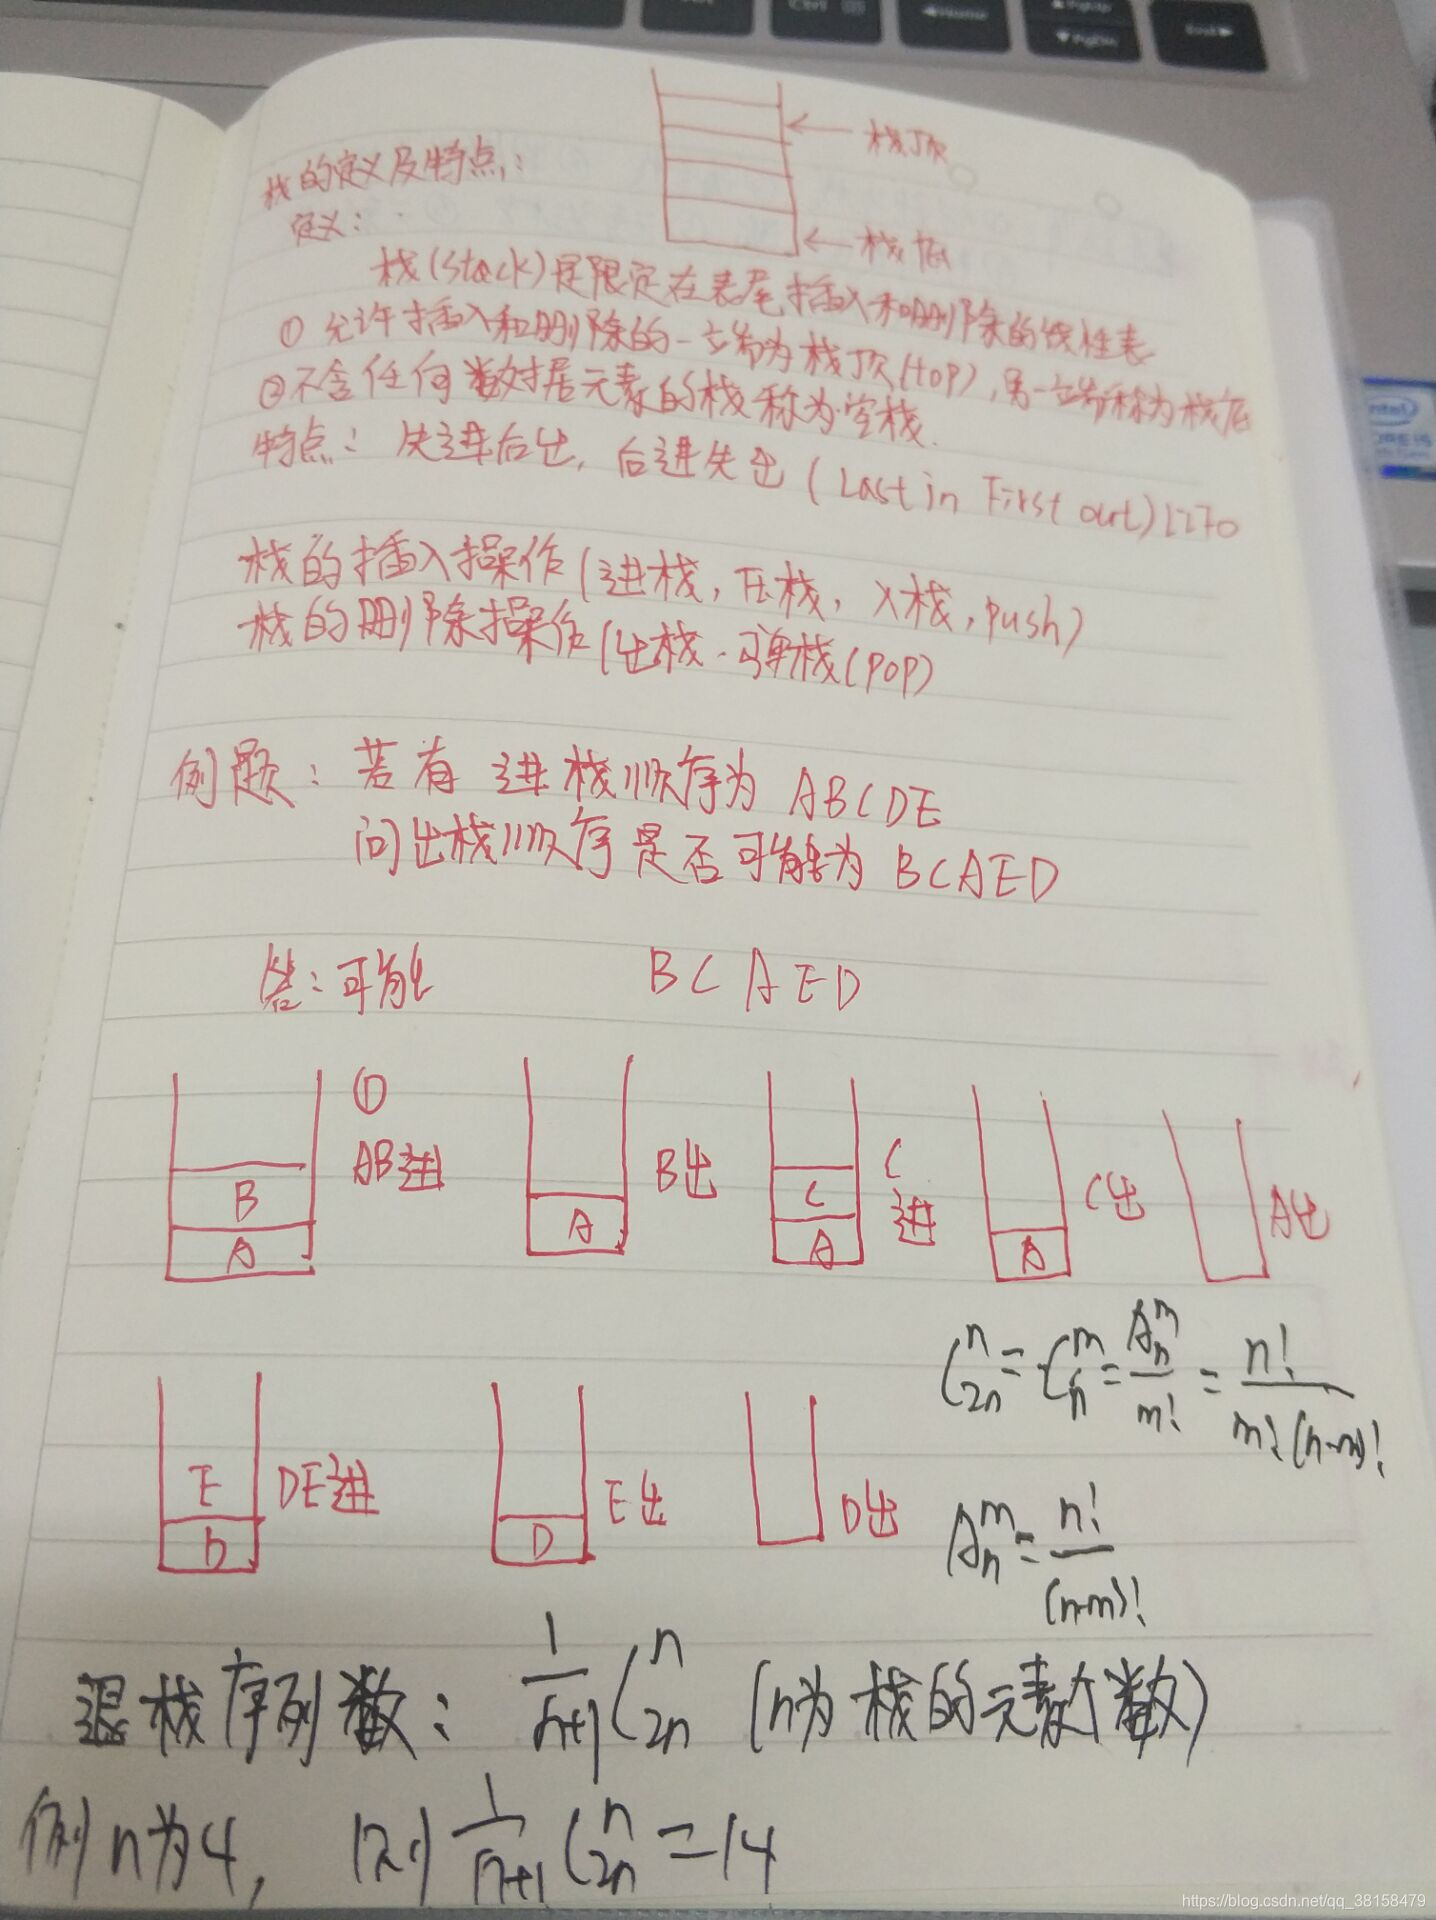 Ctrl
Home
PgUp
PgDn
End
栈顶
栈的定义及特点:
定义:
栈底
栈(Stack)是限定在表尾插入和删除的线性表
① 允许插入和删除的一端为栈顶(top),另一端称为栈底
②不含任何数据元素的栈称为空栈.
特点: 先进后出, 后进先出 (Last in First out) LIFO
栈的插入操作(进栈,压栈,入栈,push)
栈的删除操作(出栈.弹栈(POP)
例题: 若有进栈顺序为 ABCDE
问出栈顺序是否可能为 BCAED
答:可能 BCAED
① AB进
B
A
B出
A
C进
C
A
C出
A
A出
C_{2n}^{n} = C_n^m = \frac{A_n^m}{m!} = \frac{n!}{m!(n-m)!}
DE进
E
D
E出
D
D出
A_n^m = \frac{n!}{(n-m)!}
退栈序列数: \frac{1}{n+1} C_{2n}^{n} (n为栈的元素个数)
例n为4, 则 \frac{1}{n+1} C_{2n}^{n} = 14
intel
https://blog.csdn.net/qq_38158479